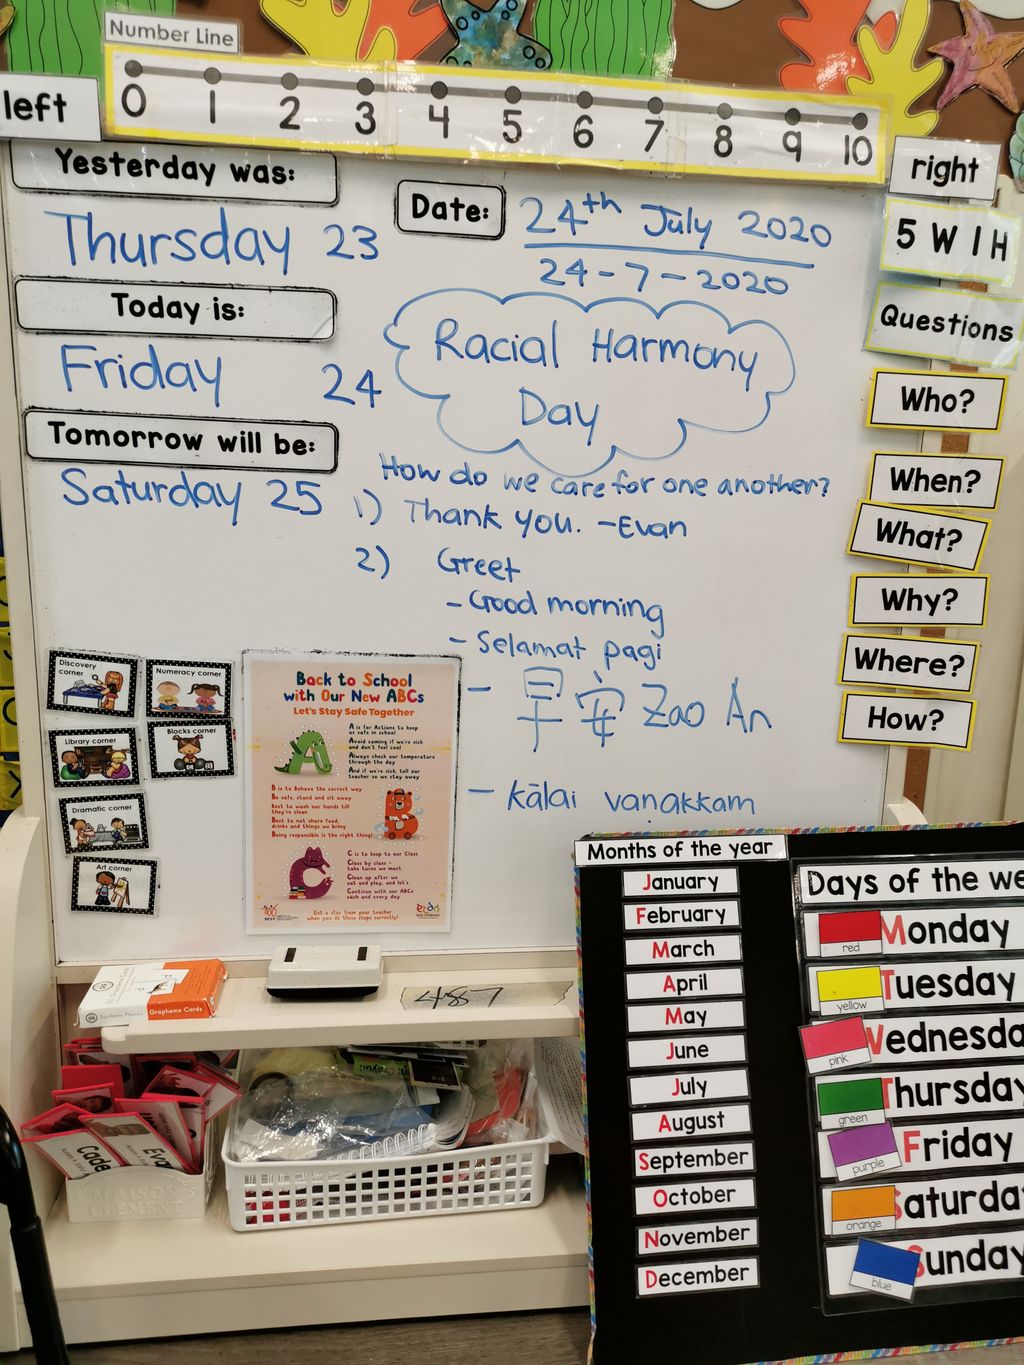 Number Line
left
0 1 2 3 4 5 6 7 8 9 10
right
Yesterday was:
Thursday 23
Date:
24th July 2020
24-7-2020
Today is:
Friday 24
Racial Harmony
Day
Tomorrow will be:
Saturday 25
How do we care for one another?
1) Thank you. -Evan
2) Greet
- Good morning
- Selamat pagi
- 早安 Zao An
- kālai vaṇakkam
5 W 1 H
Questions
Who?
When?
What?
Why?
Where?
How?
Discovery
corner
Numeracy corner
Library corner
Blocks corner
Dramatic corner
Art corner
Back to School
with Our New ABCs
Let's Stay Safe Together
A is for Actions to keep
us safe in school
Avoid coming if we're sick
and don't feel cool
Always check our temperature
through the day
And if we're sick, tell our
teacher so we stay away
B is to Behave the correct way
Be safe, stand and sit away
Best to wash our hands till
they're clean
Best to not share food,
drinks and things we bring
Being responsible is the right thing!
C is to keep to our Class
Class by class -
take turns we must
Clean up after we
eat and play, and let's
Continue with our ABCs
each and every day
Get a star from your teacher
when you do these steps correctly!
ecda
Grapheme Cards
Synthetic Phonics
487
Cade
Eva
MAISON
CLEMENT
Months of the year
January
February
March
April
May
June
July
August
September
October
November
December
Days of the we
red Monday
yellow Tuesday
pink Wednesda
green Thursday
purple Friday
orange Saturda
blue Sunday